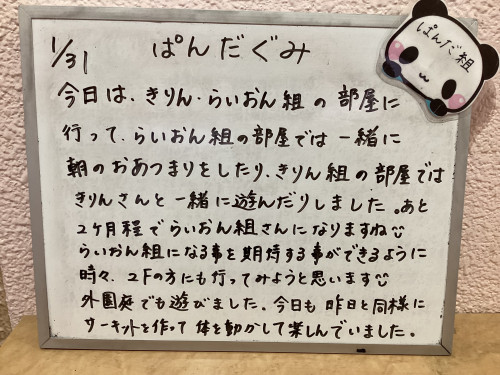 1/31 ぱんだぐみ
ぱんだ組
今日は、きりん・らいおん組の部屋に
行って、らいおん組の部屋では一緒に
朝のおあつまりをしたり、きりん組の部屋では
きりんさんと一緒に遊んだりしました。あと
2ヶ月程でらいおん組さんになりますね
らいおん組になる事を期待する事ができるように
時々、2Fの方にも行ってみようと思います
外園庭でも遊びました。今日も昨日と同様に
サーキットを作って体を動かして楽しんでいました。